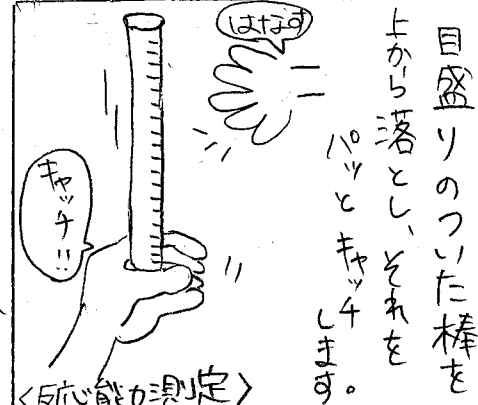 目盛りのついた棒を
上から落とし、それを
パッとキャッチ
します。
はなす
キャッチ!!
〈反応能力測定〉